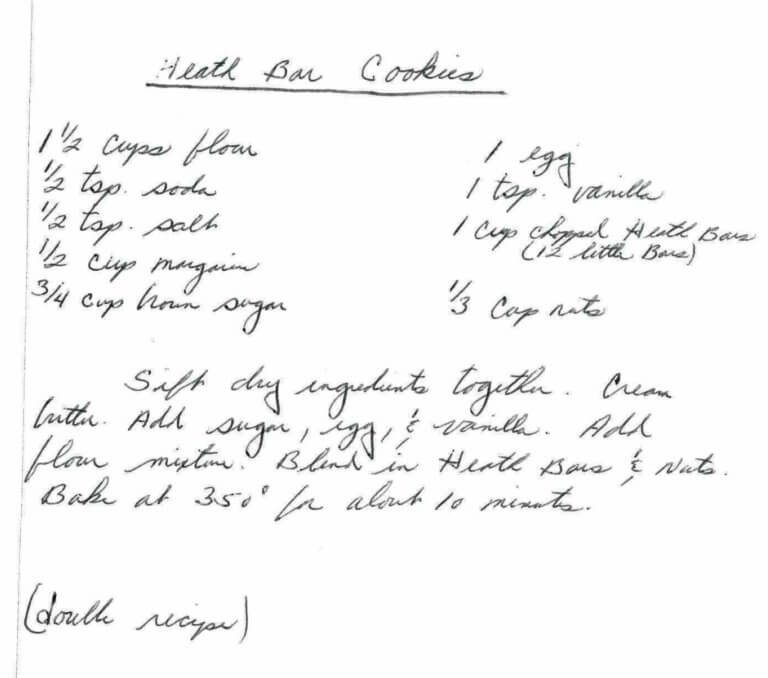 Heath Bar Cookies
1 1/2 cups flour
1/2 tsp. soda
1/2 tsp. salt
1/2 cup margarine
3/4 cup brown sugar
1 egg
1 tsp. vanilla
1 cup chopped Heath Bars
(12 little Bars)
1/3 cup nuts
Sift dry ingredients together. Cream
butter. Add sugar, egg, & vanilla. Add
flour mixture. Blend in Heath Bars & Nuts.
Bake at 350° for about 10 minutes.
(double recipe)